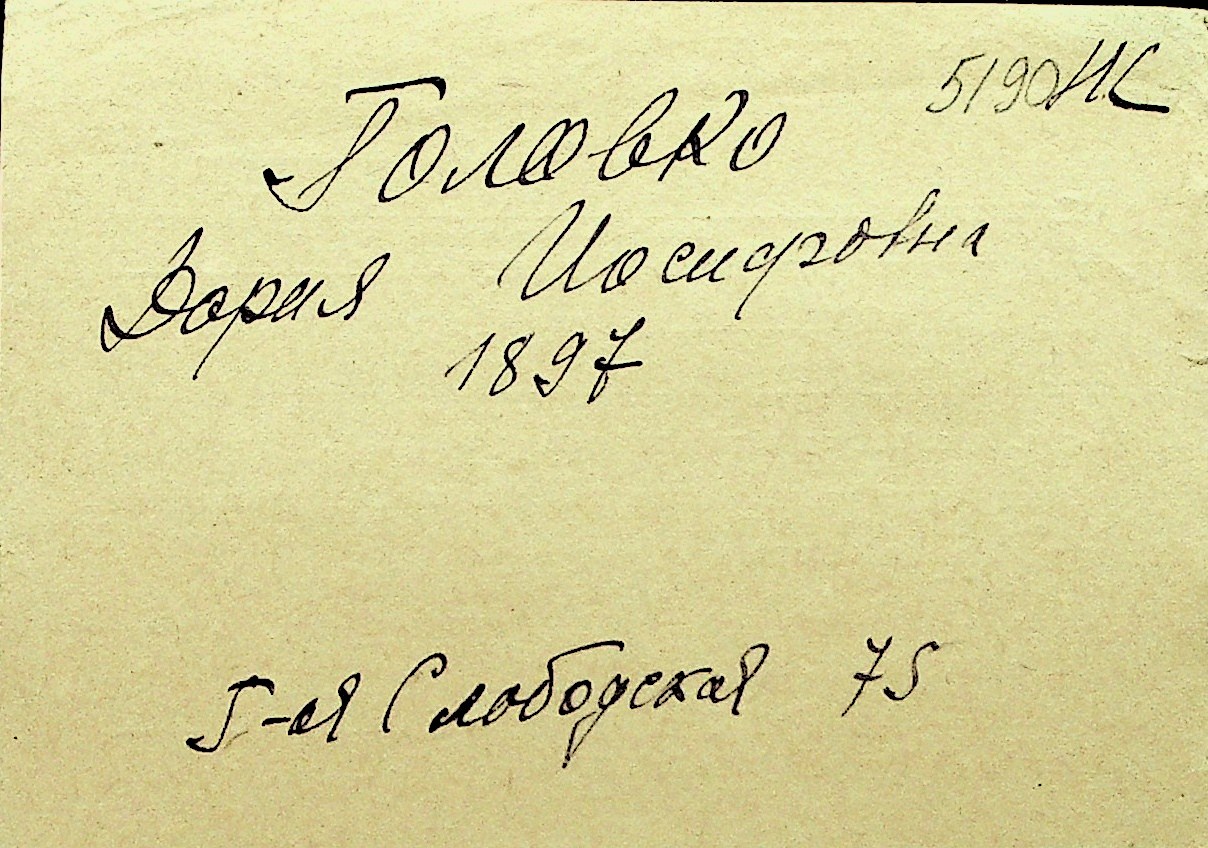 5190НК
Головко
Дария Иосифовна
1897
5-ая Слободская 75